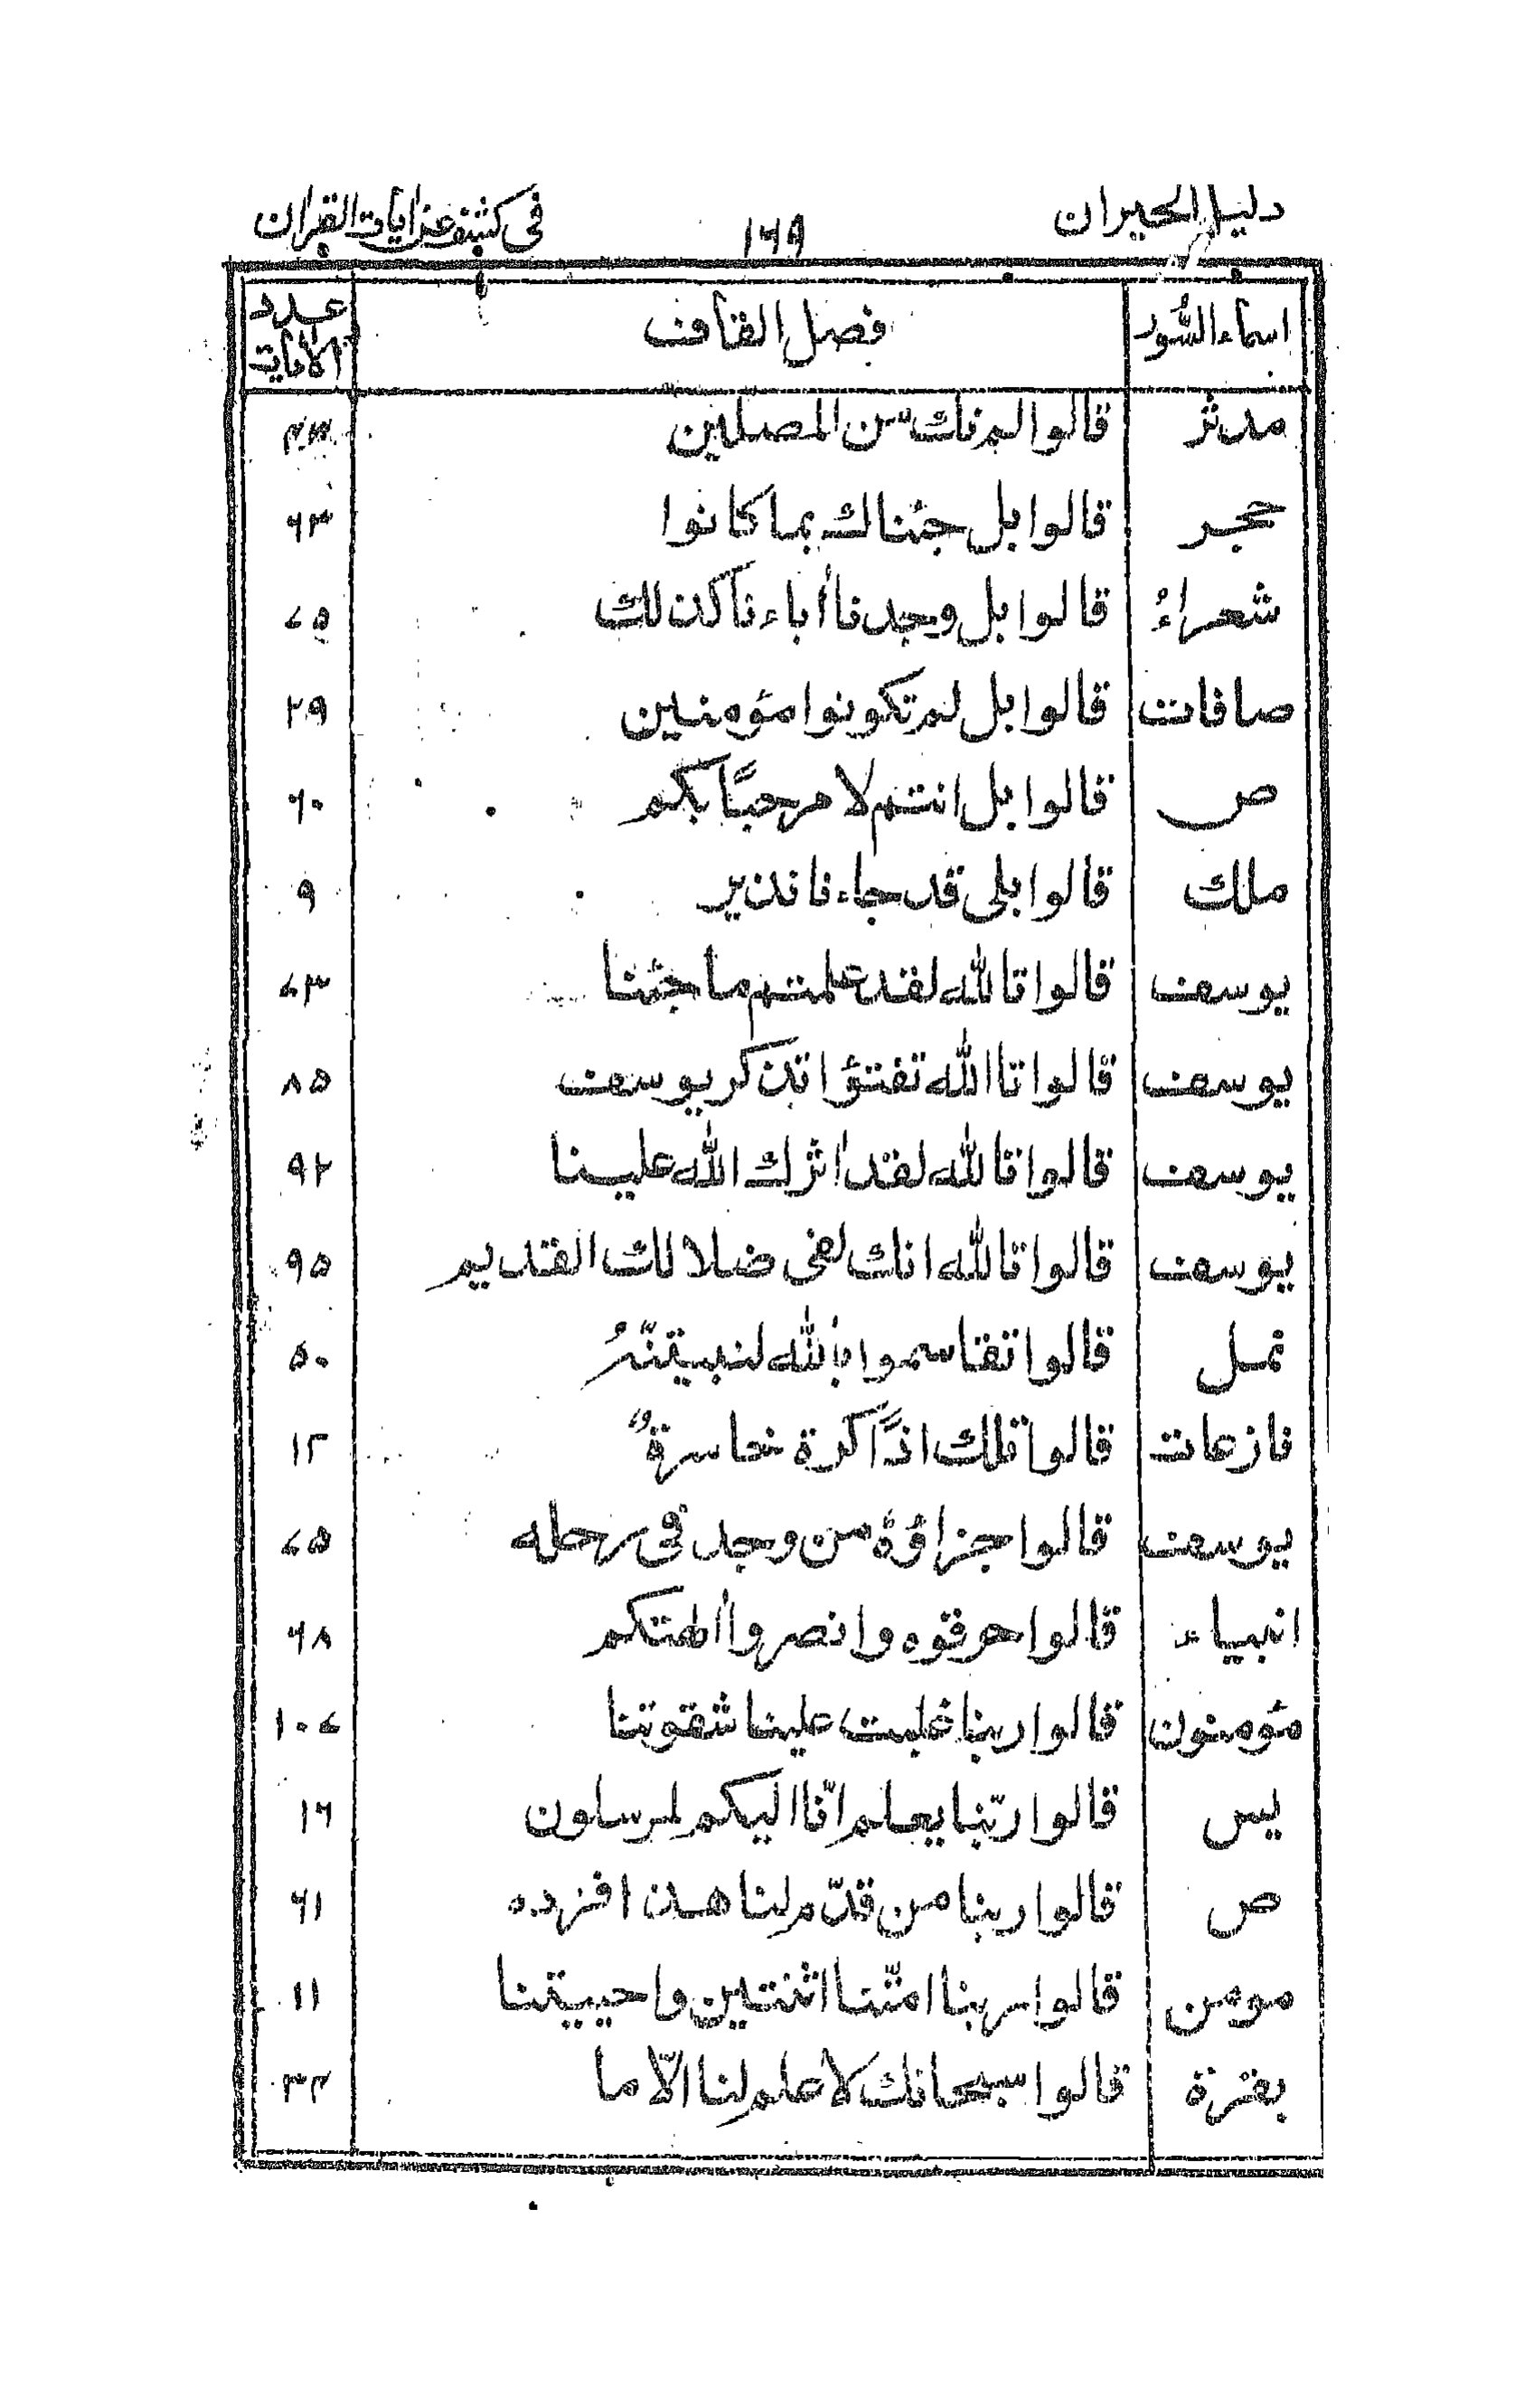 دليل الحيران ١٦٩ في كشف عن ايات القران
اسماء السُّور فصل القاف عدد الأيات
مدثر قالوا لم نك من المصلين ٤٣
حجر قالوا بل جئناك بما كانوا ٦٣
شعراءُ قالوا بل وجدنا أباءنا كذلك ٧٥
صافات قالوا بل لم تكونوا مؤمنين ٢٩
ص قالوا بل انتم لا مرحبًا بكم ٦٠
ملك قالوا بلى قد جاءنا نذير ٩
يوسف قالوا تالله لقد علمتم ما جئنا ٧٣
يوسف قالوا تاالله تفتؤا تذكر يوسف ٨٥
يوسف قالوا تالله لقد اثرك الله علينا ٩٢
يوسف قالوا تالله انك لفى ضلالك القديم ٩٥
نمل قالوا تقاسموا بالله لنبيتنّهُ ٥٠
نازعات قالوا تلك اذًا كرة خاسرةٌ ١٢
يوسف قالوا جزاؤهٗ من وجد فى رحله ٧٥
انبياء قالوا حرقوه وانصروا ألهتكم ٦٨
مؤمنون قالوا ربنا غلبت علينا شقوتنا ١٠٦
يس قالوا ربّنا يعلم انّا اليكم لمرسلون ١٦
ص قالوا ربنا من قدّم لنا هذا فزده ٦١
مومن قالوا ربنا امتّنا اثنتين واحييتنا ١١
بقرة قالوا سبحانك لا علم لنا الّا ما ٣٢